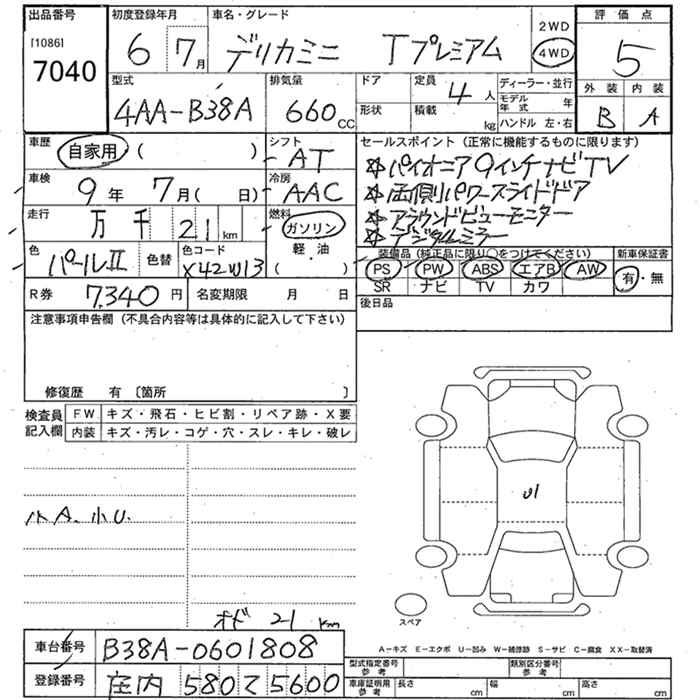 出品番号
[1086]
7040
初度登録年月
6 7月
車名・グレード
デリカミニ Tプレミアム
2WD
4WD
評価点
5
外装 内装
B A
型式
4AA-B38A
排気量
660 CC
ドア
形状
定員
4人
積載
kg
ディーラー・並行
モデル年式 年
ハンドル 左・右
車歴
自家用 ( )
シフト
AT
セールスポイント (正常に機能するものに限ります)
☆パイオニア9インチナビTV
☆両側パワースライドドア
☆アラウンドビューモニター
☆デジタルミラー
車検
9年 7月( 日)
冷房
AAC
走行
万 千 21 km
燃料
ガソリン
軽油
( )
色
パールII
色替
色コード
X42W13
装備品 (純正品に限り○をつけてください)
新車保証書
PS PW ABS エアB AW
SR ナビ TV カワ
有・無
R券 7,340円
名変期限 月 日
後日品
注意事項申告欄 (不具合内容等は具体的に記入して下さい)
修復歴 有 〔箇所 〕
検査員記入欄
FW キズ・飛石・ヒビ割・リペア跡・X要
内装 キズ・汚レ・コゲ・穴・スレ・キレ・破レ
小A. 小U.
U1
スペア
オド 21 km
A-キズ E-エクボ U-凹み W-補修跡 S-サビ C-腐食 XX-取替済
車台番号
B38A-0601808
登録番号
庄内 580 て 5600
型式指定番号 参考
類別区分番号 参考
車庫証明用 参考
長さ cm
幅 cm
高さ cm